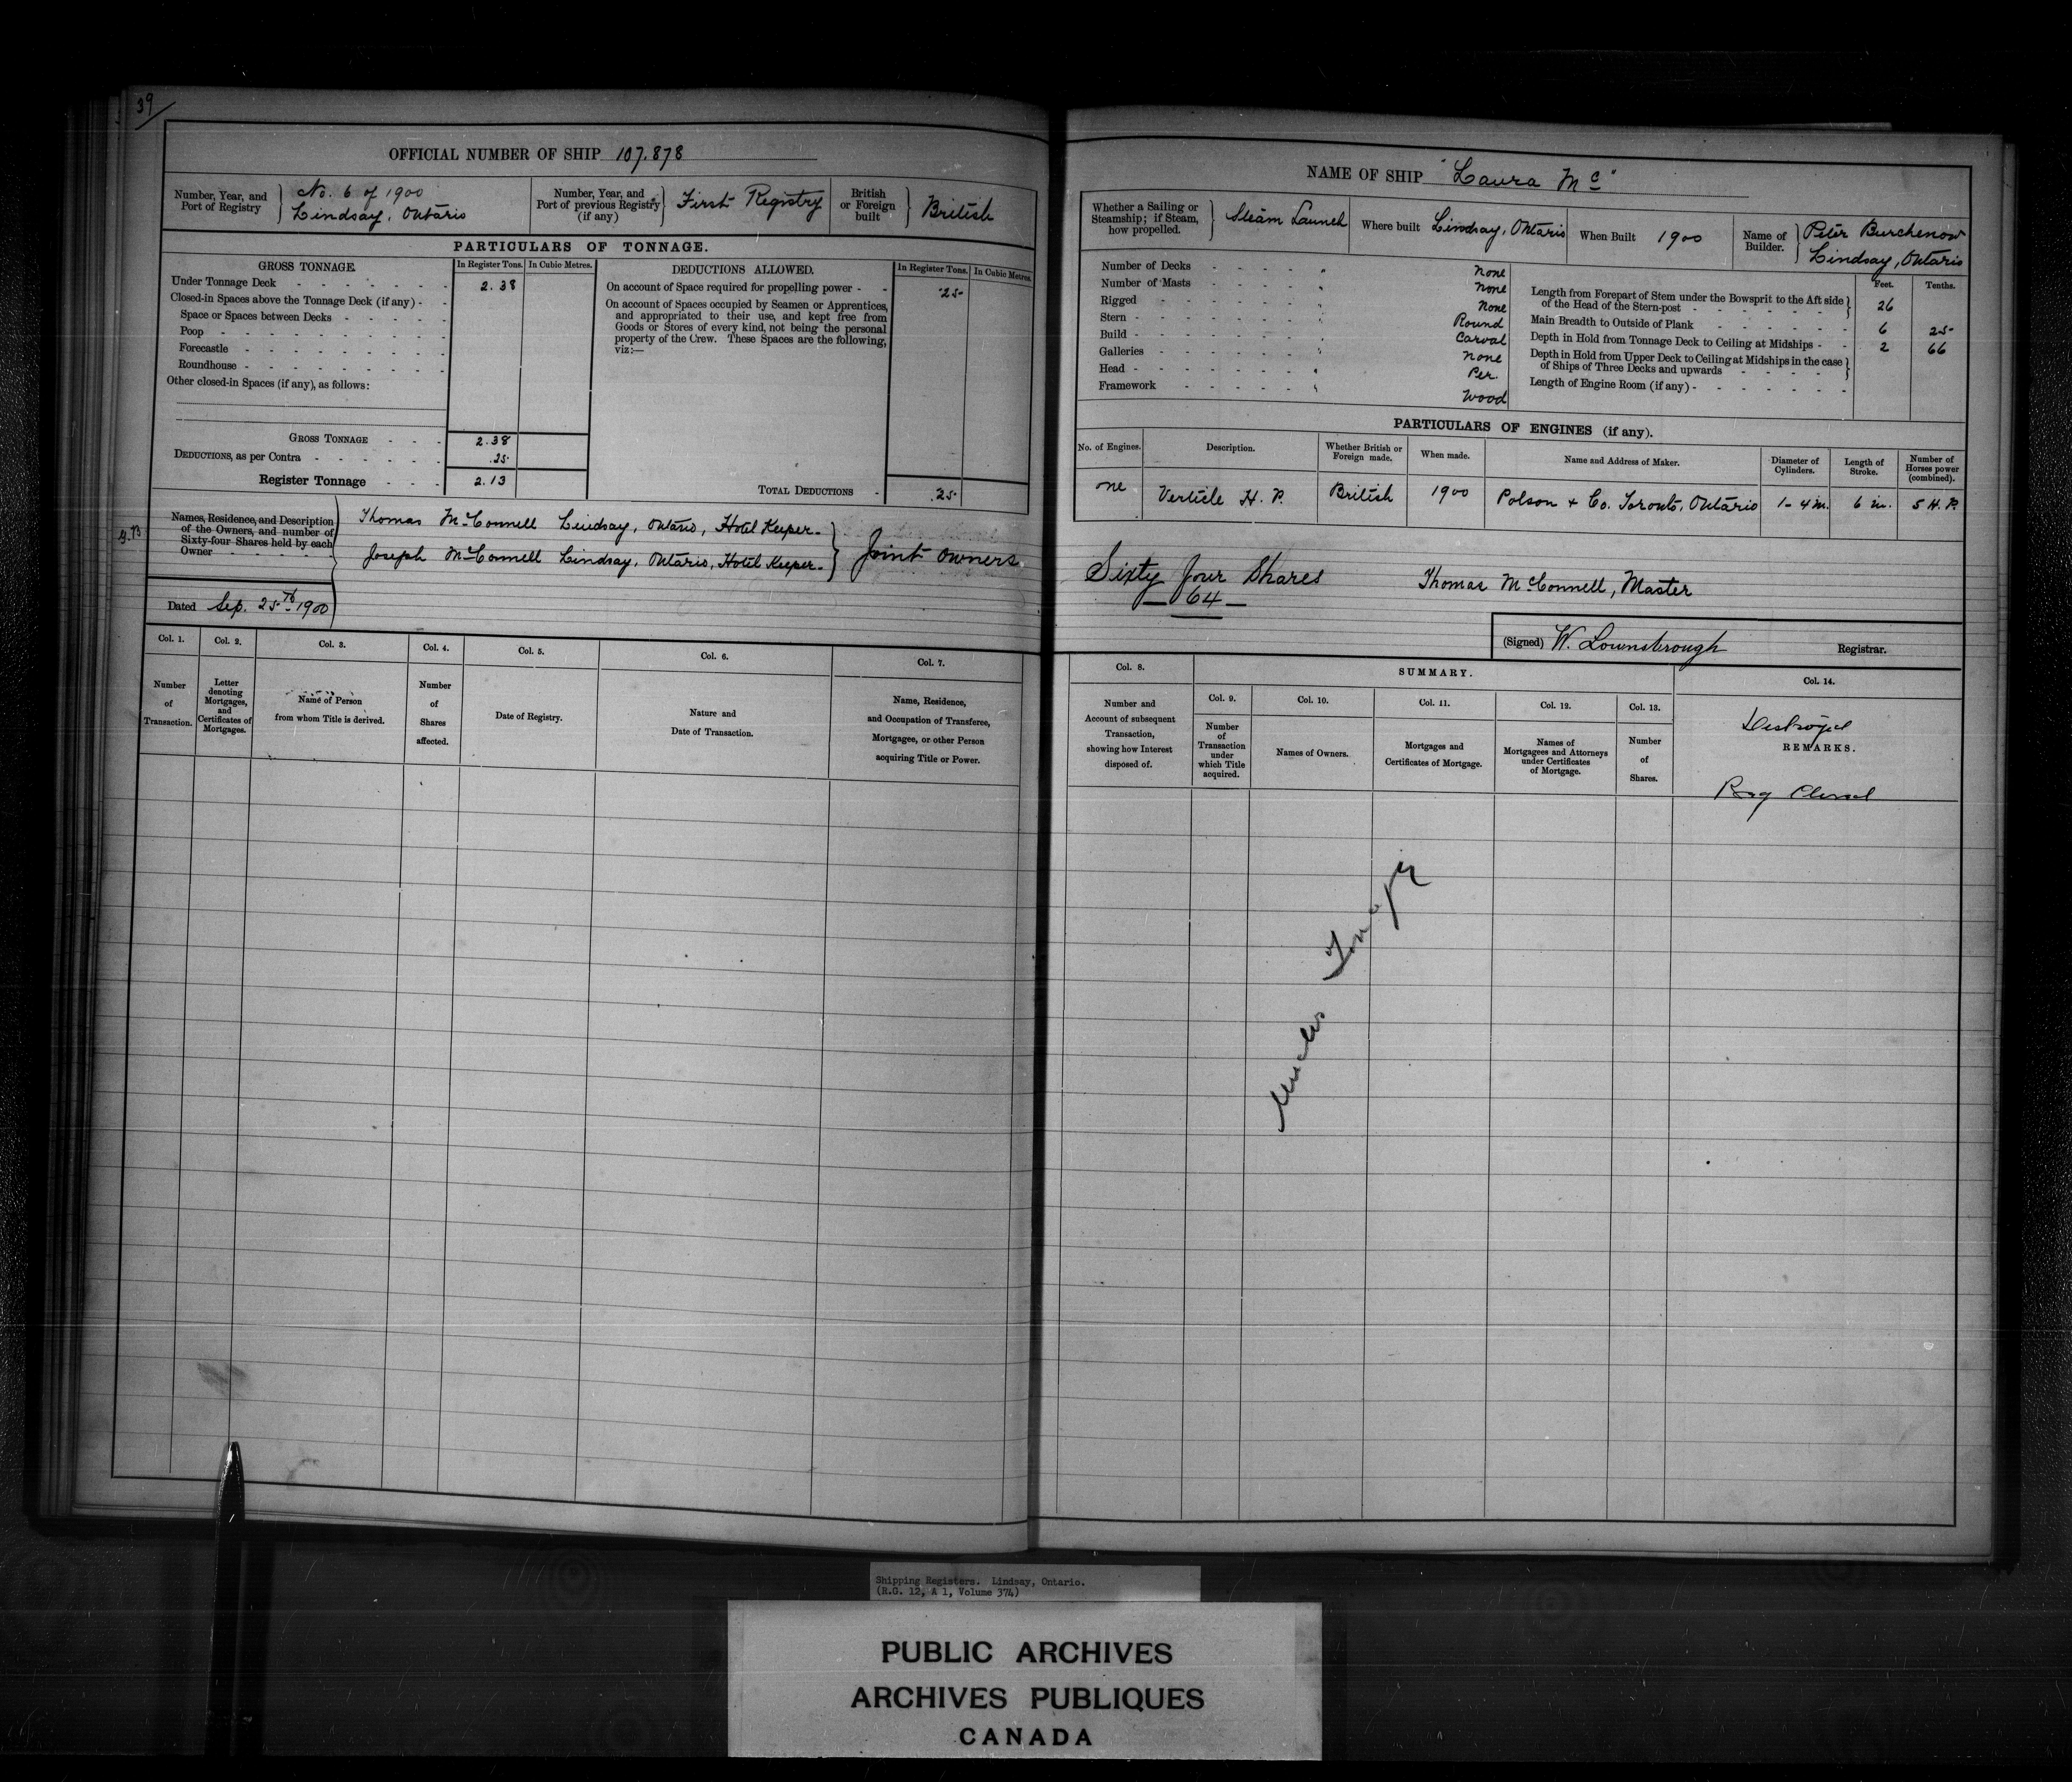 39
OFFICIAL NUMBER OF SHIP 107.878
Number, Year, and Port of Registry } No. 6 of 1900 Lindsay, Ontario
Number, Year, and Port of previous Registry (if any) } First Registry
British or Foreign built } British
PARTICULARS OF TONNAGE.
GROSS TONNAGE. In Register Tons. In Cubic Metres.
Under Tonnage Deck - 2.38
Closed-in Spaces above the Tonnage Deck (if any) -
Space or Spaces between Decks -
Poop -
Forecastle -
Roundhouse -
Other closed-in Spaces (if any), as follows:
GROSS TONNAGE - 2.38
DEDUCTIONS, as per Contra - .25
Register Tonnage - 2.13
DEDUCTIONS ALLOWED. In Register Tons. In Cubic Metres.
On account of Space required for propelling power - .25
On account of Spaces occupied by Seamen or Apprentices,
and appropriated to their use, and kept free from
Goods or Stores of every kind, not being the personal
property of the Crew. These Spaces are the following,
viz:—
TOTAL DEDUCTIONS - .25
Names, Residence, and Description
of the Owners, and number of
Sixty-four Shares held by each
Owner
Thomas McConnell Lindsay, Ontario, Hotel Keeper.
Joseph McConnell Lindsay, Ontario, Hotel Keeper.
} Joint Owners
Dated Sep. 25th 1900
Col. 1. Number of Transaction.
Col. 2. Letter denoting Mortgages, and Certificates of Mortgages.
Col. 3. Name of Person from whom Title is derived.
Col. 4. Number of Shares affected.
Col. 5. Date of Registry.
Col. 6. Nature and Date of Transaction.
Col. 7. Name, Residence, and Occupation of Transferee, Mortgagee, or other Person acquiring Title or Power.
NAME OF SHIP "Laura Mc"
Whether a Sailing or Steamship; if Steam, how propelled. } Steam Launch
Where built Lindsay, Ontario
When Built 1900
Name of Builder. } Peter Burchenow Lindsay, Ontario
Number of Decks - None
Number of Masts - None
Rigged - None
Stern - Round
Build - Carval
Galleries - None
Head - Per.
Framework - Wood
Feet. Tenths.
Length from Forepart of Stem under the Bowsprit to the Aft side of the Head of the Stern-post - 26
Main Breadth to Outside of Plank - 6 25
Depth in Hold from Tonnage Deck to Ceiling at Midships - 2 66
Depth in Hold from Upper Deck to Ceiling at Midships in the case of Ships of Three Decks and upwards -
Length of Engine Room (if any) -
PARTICULARS OF ENGINES (if any).
No. of Engines. Description. Whether British or Foreign made. When made. Name and Address of Maker. Diameter of Cylinders. Length of Stroke. Number of Horses power (combined).
One Verticle H. P. British 1900 Polson & Co. Toronto, Ontario 1 - 4 in. 6 in. 5 H. P.
Sixty four Shares
64
Thomas McConnell, Master
(Signed) W. Lownsbrough Registrar.
Col. 8. Number and Account of subsequent Transaction, showing how Interest disposed of.
SUMMARY.
Col. 9. Number of Transaction under which Title acquired.
Col. 10. Names of Owners.
Col. 11. Mortgages and Certificates of Mortgage.
Col. 12. Names of Mortgagees and Attorneys under Certificates of Mortgage.
Col. 13. Number of Shares.
Col. 14.
Destroyed
REMARKS.
Reg Closed
Shipping Registers. Lindsay, Ontario.
(R.G. 12, A 1, Volume 374)
PUBLIC ARCHIVES
ARCHIVES PUBLIQUES
CANADA